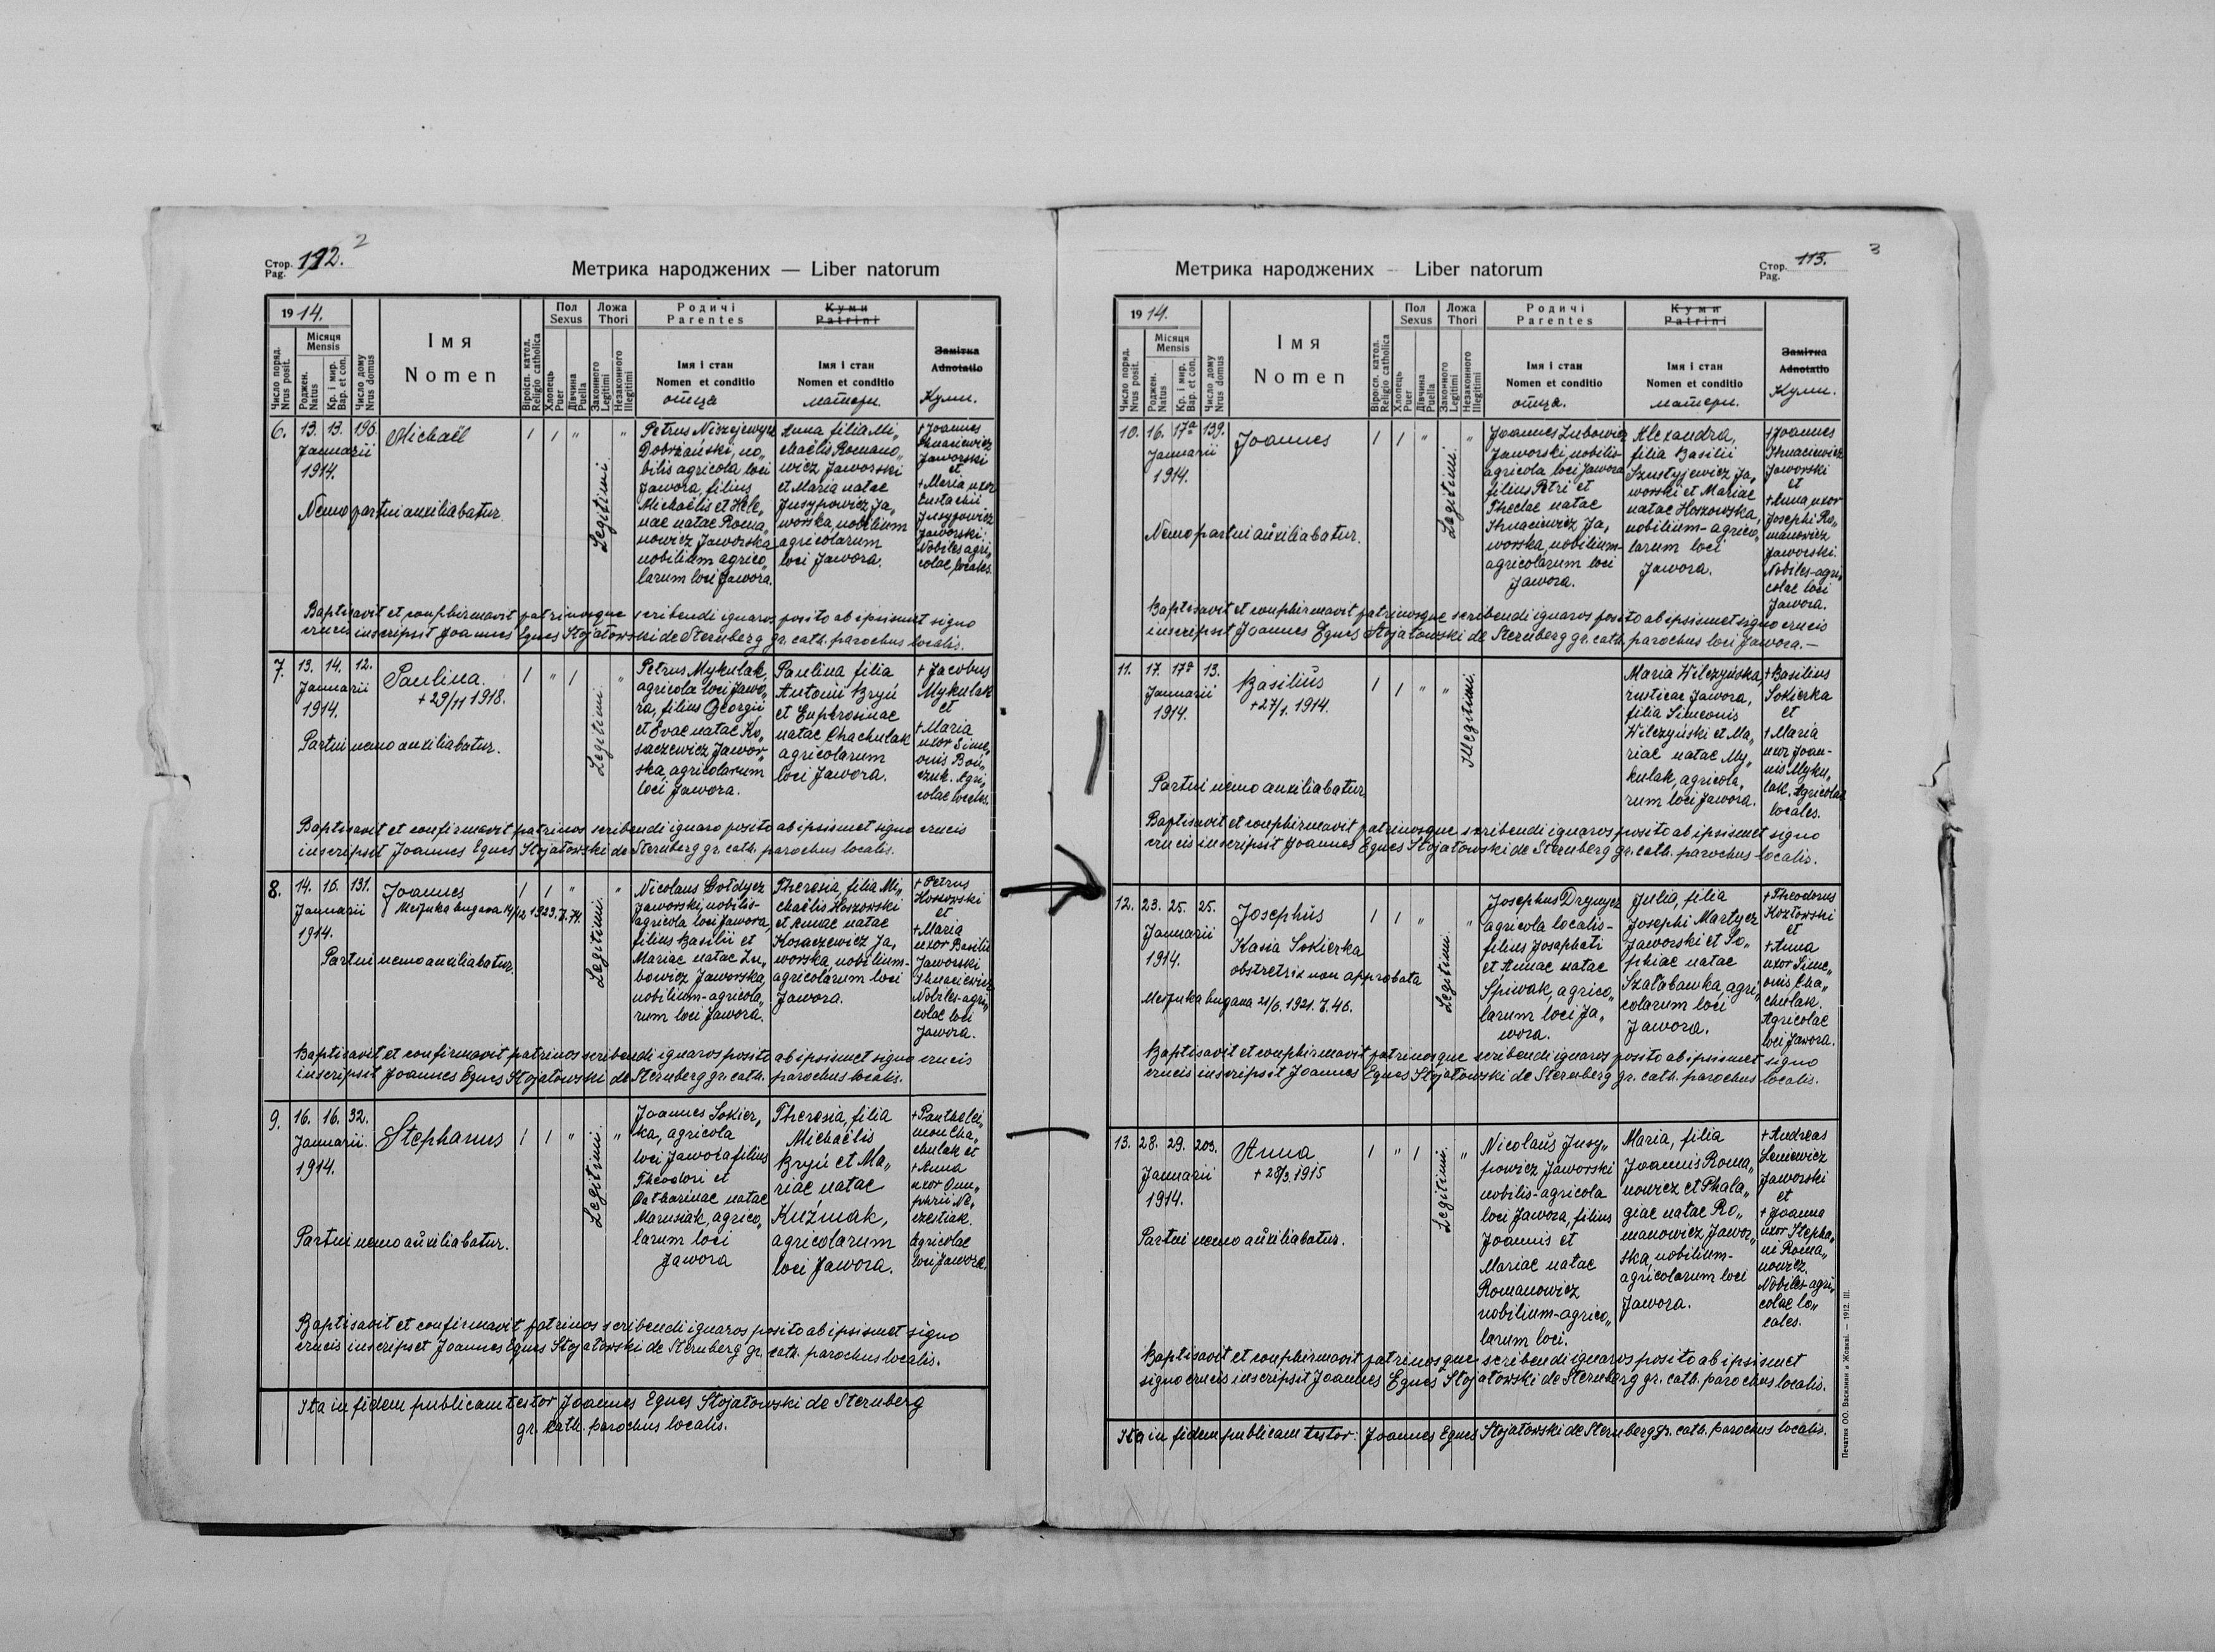 Стор. Pag. 112. 2
Метрика народжених — Liber natorum
1914.
Місяця Mensis
Число поряд. Nrus posit.
Роджен. Natus
Кр. і мир. Bap. et con.
Число дому Nrus domus
Імя
Nomen
Віроісп. катол. Religio catholica
Пол Sexus
Хлопець Puer
Дівчина Puella
Ложа Thori
Законного Legitimi
Незаконного Illegitimi
Родичі
Parentes
Імя і стан
Nomen et conditio
отца
Куми
Patrini
Імя і стан
Nomen et conditio
матери.
Замітка
Adnotatio
Куми.
6. 13. 13. 196.
Januarii
1914.
Michaël
1 1 " "
Legitimi.
Nemo partui auxiliabatur.
Petrus Niszejewycz
Dobrzański, no„
bilis agricola loci
Jawora, filius
Michaëlis et Hele„
nae natae Roma„
nowicz Jaworska
nobilium agrico„
larum loci Jawora.
Anna filia Mi„
chaëlis Romano„
wicz Jaworski
et Maria natae
Jusypowicz Ja„
worska, nobilium
agricolarum
loci Jawora.
+ Joannes
Ihnaciewicz
Jaworski
et
+ Maria uxor
Eustachii
Jusypowicz
Jaworski.
Nobiles agri„
colae locales.
Baptisavit et conphirmavit patrinosque scribendi ignaros posito ab ipsismet signo
crucis inscripsit Joannes Eques Stojałowski de Sternberg gr. cath. parochus localis.
7. 13. 14. 12.
Januarii
1914.
Paulina.
+ 29/11 1918.
1 " 1 "
Legitimi.
Partui nemo auxiliabatur.
Petrus Mykulak,
agricola loci Jawo„
ra, filius Georgii
et Evae natae Ko„
saczewicz Jawor„
ska, agricolarum
loci Jawora.
Paulina filia
Antonii Bryń
et Euphrosinae
natae Chachulak
agricolarum
loci Jawora.
+ Jacobus
Mykulak
et
+ Maria
uxor Sime„
onis Boń„
czuk. Agri„
colae locales.
Baptisavit et confirmavit patrinos scribendi ignaro posito ab ipsismet signo crucis
inscripsit Joannes Eques Stojałowski de Sternberg gr. cath. parochus localis.
8. 14. 16. 131.
Januarii
1914.
Joannes
Метрика видана 14/12 1923. Ч. 74.
1 1 " "
Legitimi.
Partui nemo auxiliabatur.
Nicolaus Gołdycz
Jaworski, nobilis-
agricola loci Jawora,
filius Basilii et
Mariae natae Lu„
bowicz Jaworska,
nobilium-agricola„
rum loci Jawora.
Theresia, filia Mi„
chaëlis Hoszowski
et Annae natae
Kosaczewicz Ja„
worska, nobilium-
agricolarum loci
Jawora.
+ Petrus
Hoszowski
et
+ Maria
uxor Basilii
Jaworski
Ihnaciewicz
Nobiles-agri„
colae loci
Jawora.
Baptisavit et confirmavit patrinos scribendi ignaros posito ab ipsismet signo crucis
inscripsit Joannes Eques Stojałowski de Sternberg gr. cath. parochus localis.
9. 16. 16. 32.
Januarii.
1914.
Stephanus
1 1 " "
Legitimi.
Partui nemo auxiliabatur.
Joannes Sokier„
ka, agricola
loci Jawora filius
Theodori et
Catharinae natae
Marusiak, agrico„
larum loci
Jawora
Theresia, filia
Michaëlis
Bryń et Ma„
riae natae
Kuźmak,
agricolarum
loci Jawora.
+ Panthelei„
mon Cha„
chulak et
+ Anna
uxor Onu„
phrii Ne„
czestiak.
Agricolae
loci Jawora.
Baptisavit et confirmavit patrinos scribendi ignaros, posito ab ipsismet signo
crucis inscripset Joannes Eques Stojałowski de Sternberg gr. cath. parochus localis.
Ita in fidem publicam testor Joannes Eques Stojałowski de Sternberg
gr. cath. parochus localis.
Метрика народжених - Liber natorum
Стор. Pag. 113. 3
1914.
Місяця Mensis
Число поряд. Nrus posit.
Роджен. Natus
Кр. і мир. Bap. et con.
Число дому Nrus domus
Імя
Nomen
Віроісп. катол. Religio catholica
Пол Sexus
Хлопець Puer
Дівчина Puella
Ложа Thori
Законного Legitimi
Незаконного Illegitimi
Родичі
Parentes
Імя і стан
Nomen et conditio
отца.
Куми
Patrini
Імя і стан
Nomen et conditio
матери.
Замітка
Adnotatio
Куми.
10. 16. 17ª 139.
Januarii
1914.
Joannes
1 1 " "
Legitimi.
Nemo partui auxiliabatur.
Joannes Lubowicz
Jaworski, nobilis-
agricola loci Jawora
filius Petri et
Theclae natae
Ihnaciewicz Ja„
worska, nobilium-
agricolarum loci
Jawora.
Alexandra,
filia Basilii
Szustyjewicz Ja„
worski et Mariae
natae Hoszowska,
nobilium-agrico„
larum loci
Jawora.
+ Joannes
Ihnaciewicz
Jaworski
et
+ Anna uxor
Josephi Ro„
manowicz
Jaworski.
Nobiles-agri„
colae loci
Jawora.
Baptisavit et conphirmavit patrinosque scribendi ignaros posito ab ipsismet signo crucis
inscripsit Joannes Eques Stojałowski de Sternberg gr. cath. parochus loci Jawora.—
11. 17. 17ª 13.
Januarii
1914.
Basilius
+ 27/1. 1914.
1 1 " "
Illegitimi.
Partui nemo auxiliabatur
Maria Wilczyńska,
rusticae Jawora,
filia Simeonis
Wilczyński et Ma„
riae natae My„
kulak, agricola„
rum loci Jawora.
+ Basilius
Sokierka
et
+ Maria
uxor Joan-
nis Myku„
lak. Agricolae
locales.
Baptisavit et conphirmavit patrinosque scribendi ignaros posito ab ipsismet signo
crucis inscripsit Joannes Eques Stojałowski de Sternberg gr. cath. parochus localis.
12. 23. 25. 25.
Januarii
1914.
Josephus
Kasia Sokierka
obstretrix non approbata
Метрика видана 21/6. 1921. Ч. 46.
1 1 " "
Legitimi.
Josephus Drymycz
agricola localis-
filius Josaphati
et Annae natae
Spiwak, agrico„
larum loci Ja„
wora.
Julia, filia
Josephi Martycz
Jaworski et So„
phiae natae
Szałabawka, agri„
colarum loci
Jawora.
+ Theodorus
Kozłowski
et
+ Anna
uxor Sime„
onis Cha„
chulak.
Agricolae
loci Jawora.
Baptisavit et conphirmavit patrinosque scribendi ignaros posito ab ipsismet signo
crucis inscripsit Joannes Eques Stojałowski de Sternberg gr. cath. parochus localis.
13. 28. 29. 203.
Januarii
1914.
Anna
+ 28/3. 1915
1 " 1 "
Legitimi.
Partui nemo auxiliabatur.
Nicolaus Jusy„
powicz Jaworski
nobilis-agricola
loci Jawora, filius
Joannis et
Mariae natae
Romanowicz
nobilium-agrico„
larum loci.
Maria, filia
Joannis Roma„
nowicz et Phala„
giae natae Ro„
manowicz Jawor„
ska, nobilium-
agricolarum loci
Jawora.
+ Andreas
Leniewicz
Jaworski
et
+ Joanna
uxor Stepha„
ni Roma„
nowicz.
Nobiles-agri„
colae lo„
cales.
Baptisavit et conphirmavit patrinosque scribendi ignaros posito ab ipsismet
signo crucis inscripsit Joannes Eques Stojałowski de Sternberg gr. cath. parochus localis.
Ita in fidem publicam testor: Joannes Eques Stojałowski de Sternberg gr. cath. parochus localis.
Печатня ОО. Василіян в Жовкві. — 1912. III.